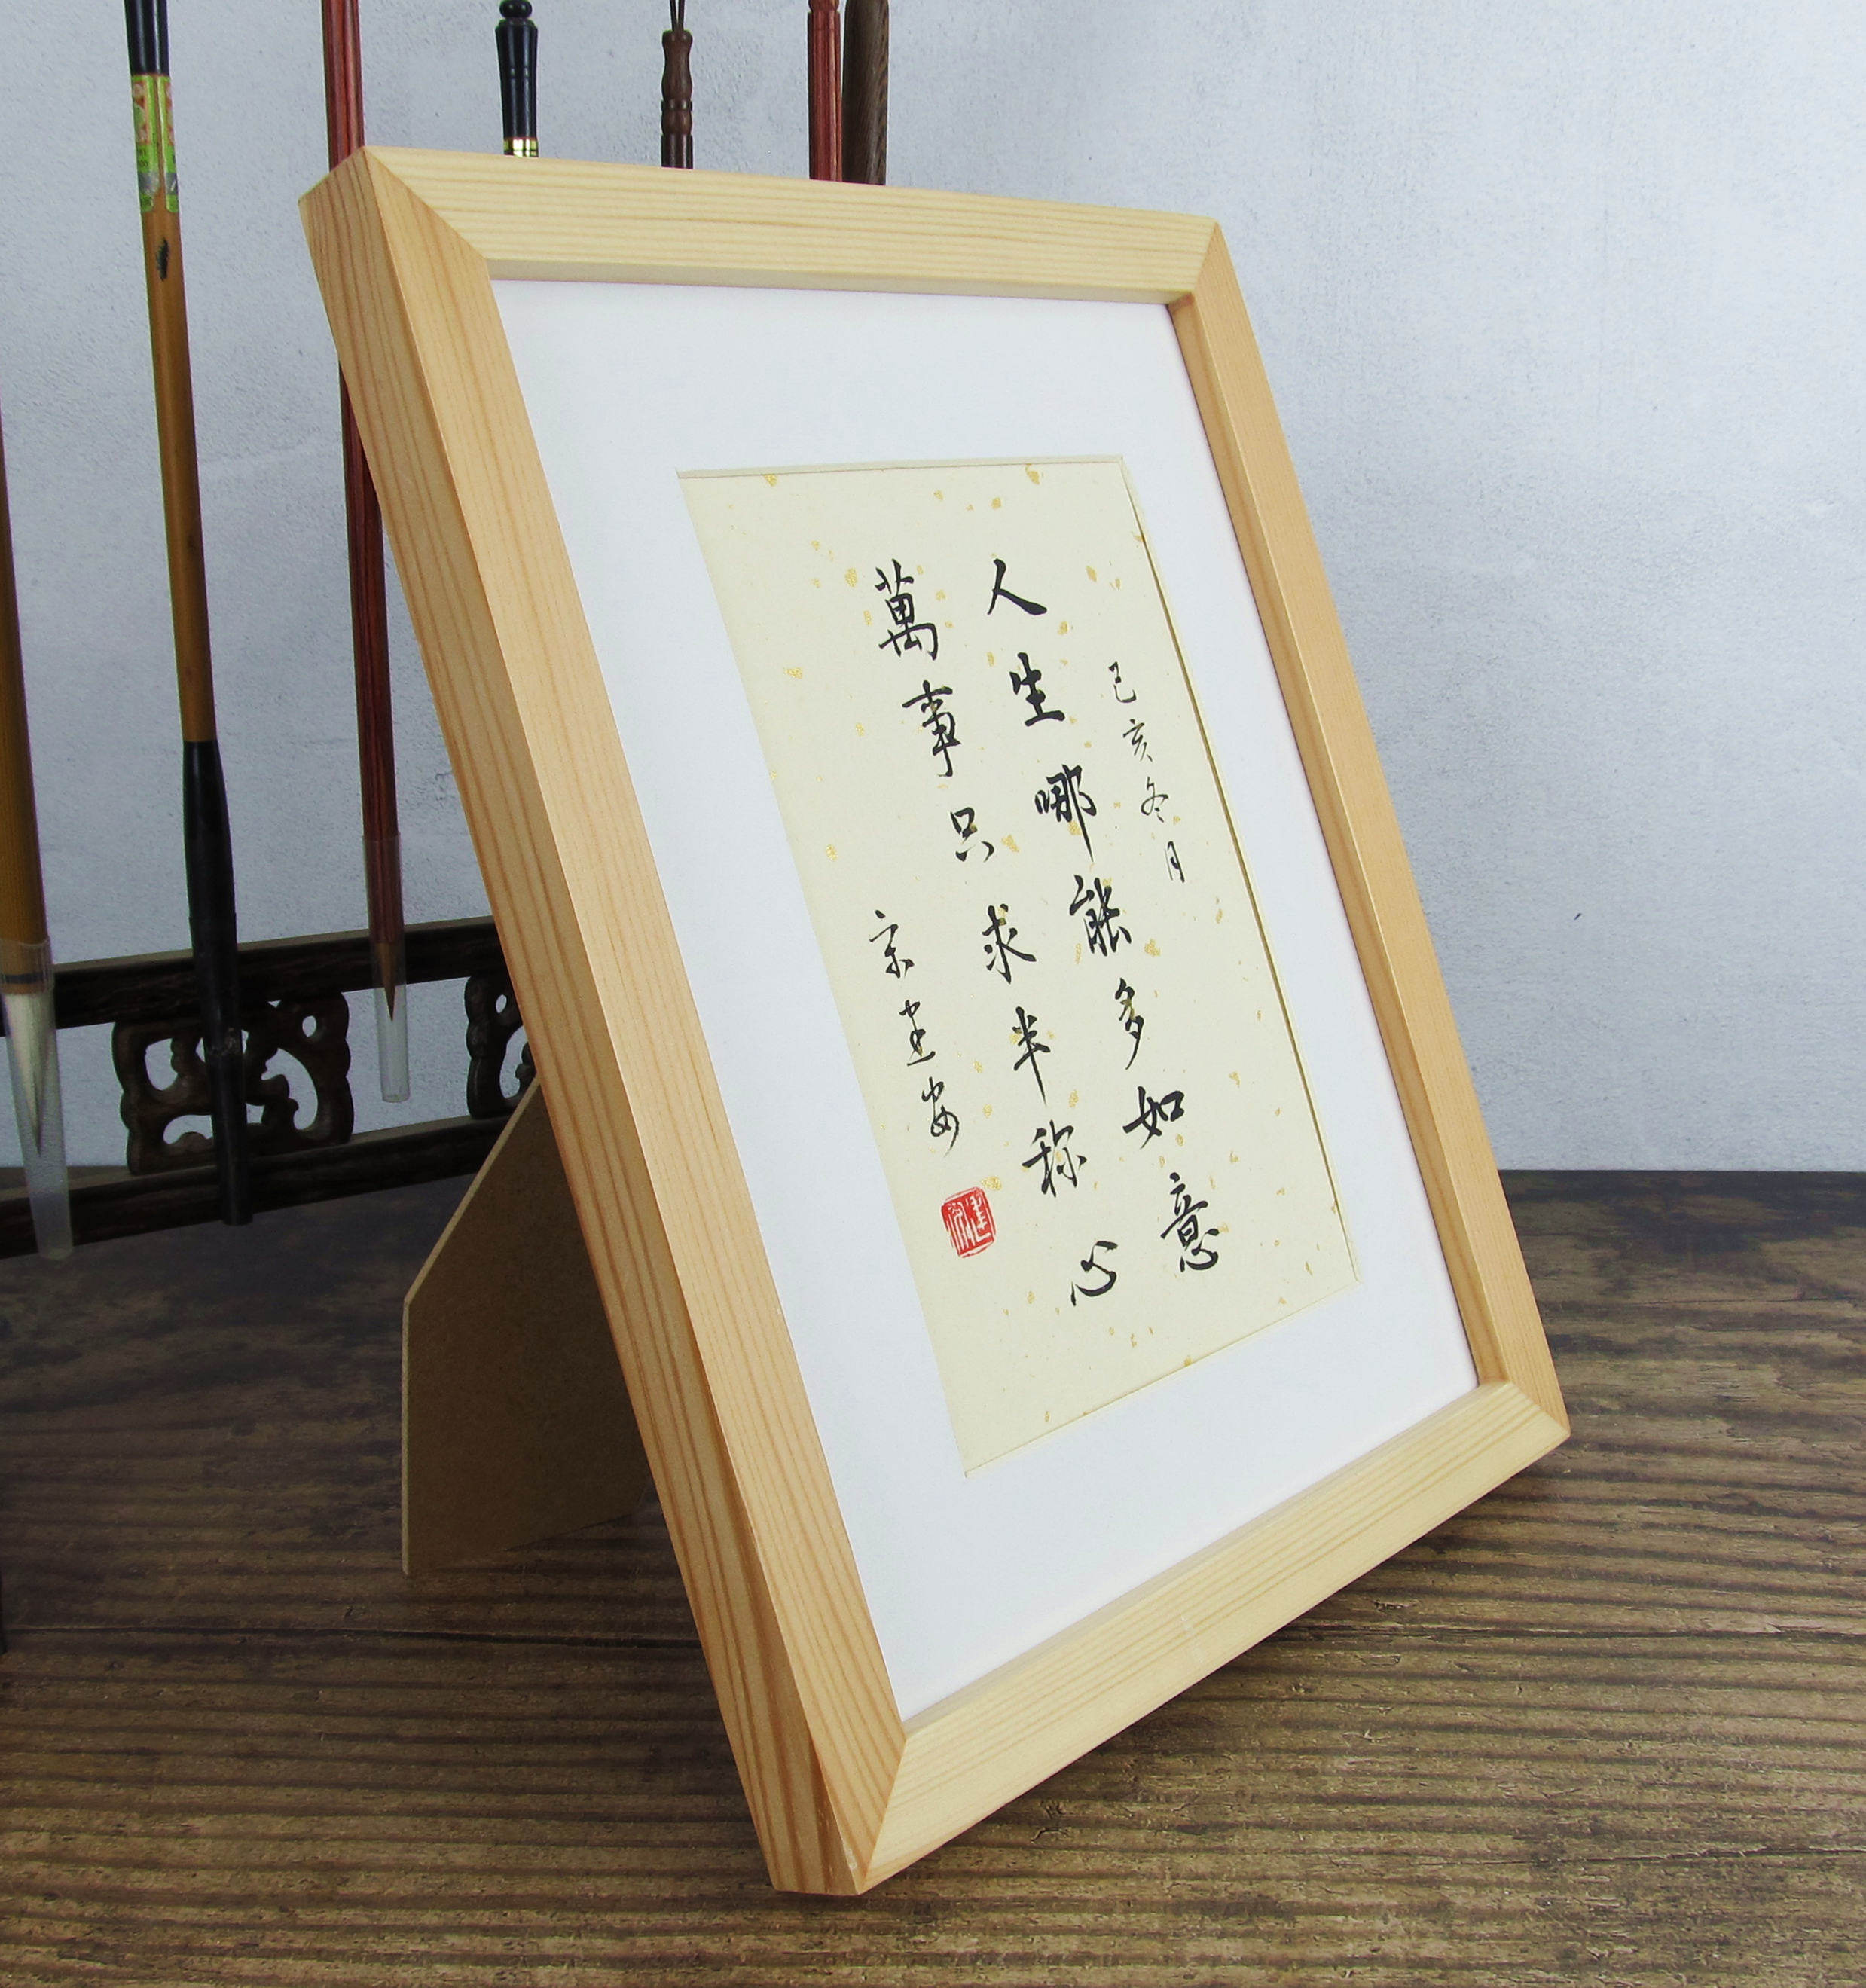 己亥冬月
人生哪能多如意
萬事只求半称心